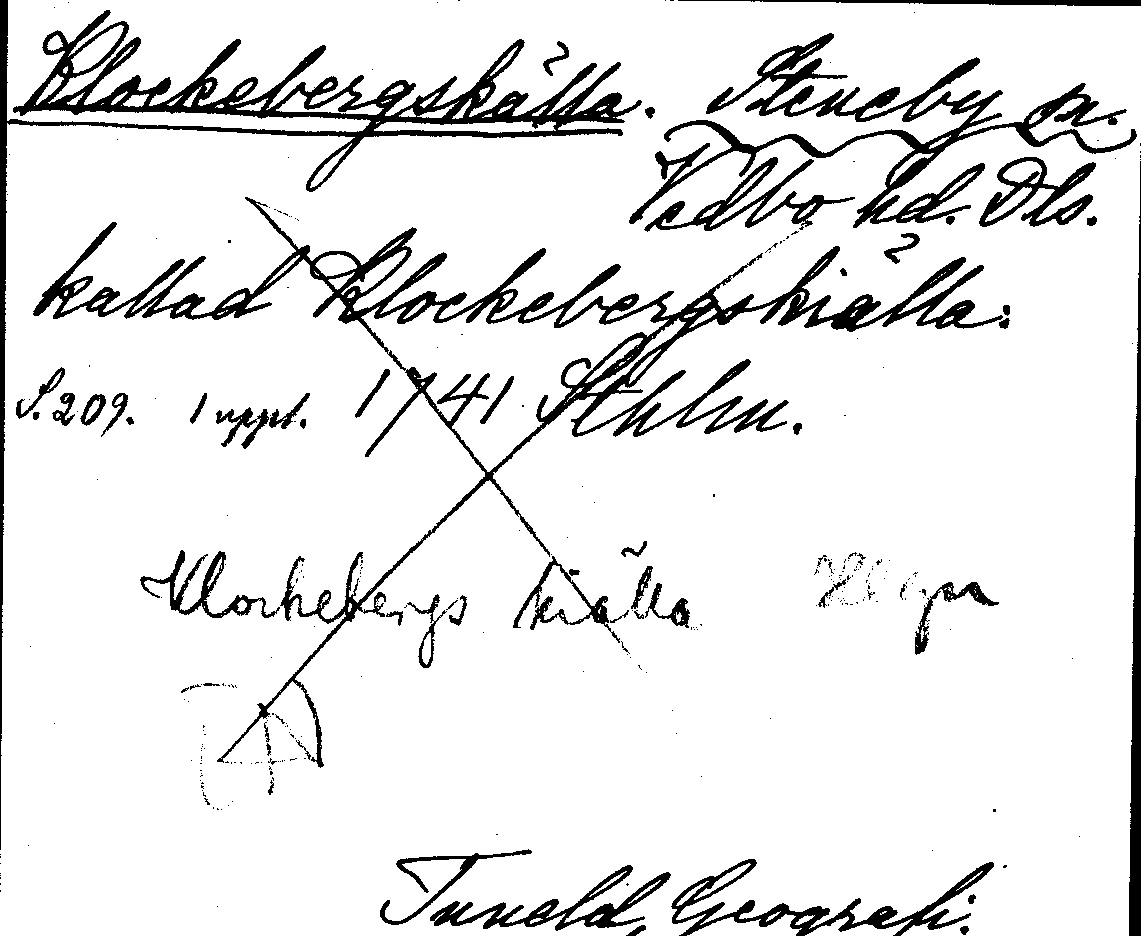 Klockebergskälla. Steneby sn.
Vedbo hd. Dls.
kallad Klockebergskiälla:
S. 209. 1 uppl. 1741 Sthlm.
Klockebergs kiälla
Tuneld, Geografi.